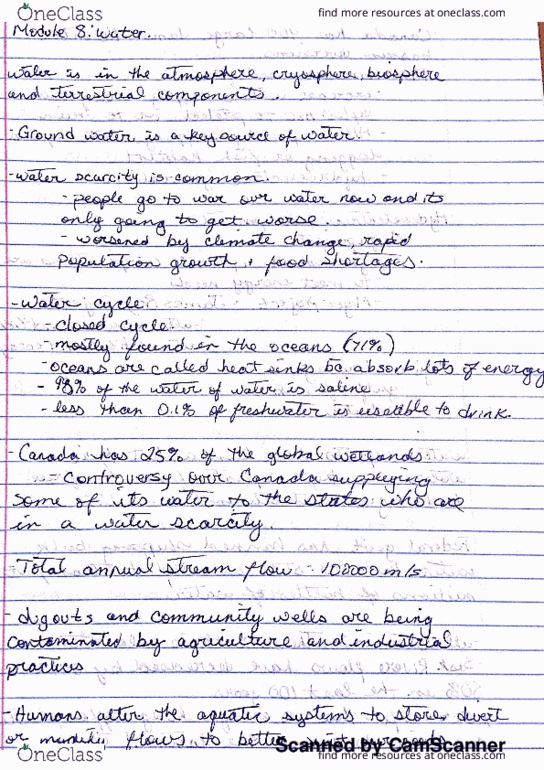 OneClass
find more resources at oneclass.com
Module 8: water.
water is in the atmosphere, cryosphere, biosphere
and terrestrial components.
- Ground water is a key source of water.
- water scarcity is common.
- people go to war over water now and its
only going to get worse.
- worsened by climate change, rapid
population growth + food shortages.
- water cycle
- closed cycle
- mostly found in the oceans (71%)
- oceans are called heat sinks bc absorb lots of energy
- % of the water of water is saline
- less than 0.1% of freshwater is useable to drink.
- Canada has 25% of the global wetlands
- controversy over Canada supplying
some of its water to the states who are
in a water scarcity.
- Total annual stream flow = m/s
- dugouts and community wells are being
contaminated by agriculture and industrial
practices
- Humans alter the aquatic systems to store, divert
or flows to better
Scanned by CamScanner
OneClass
find more resources at oneclass.com